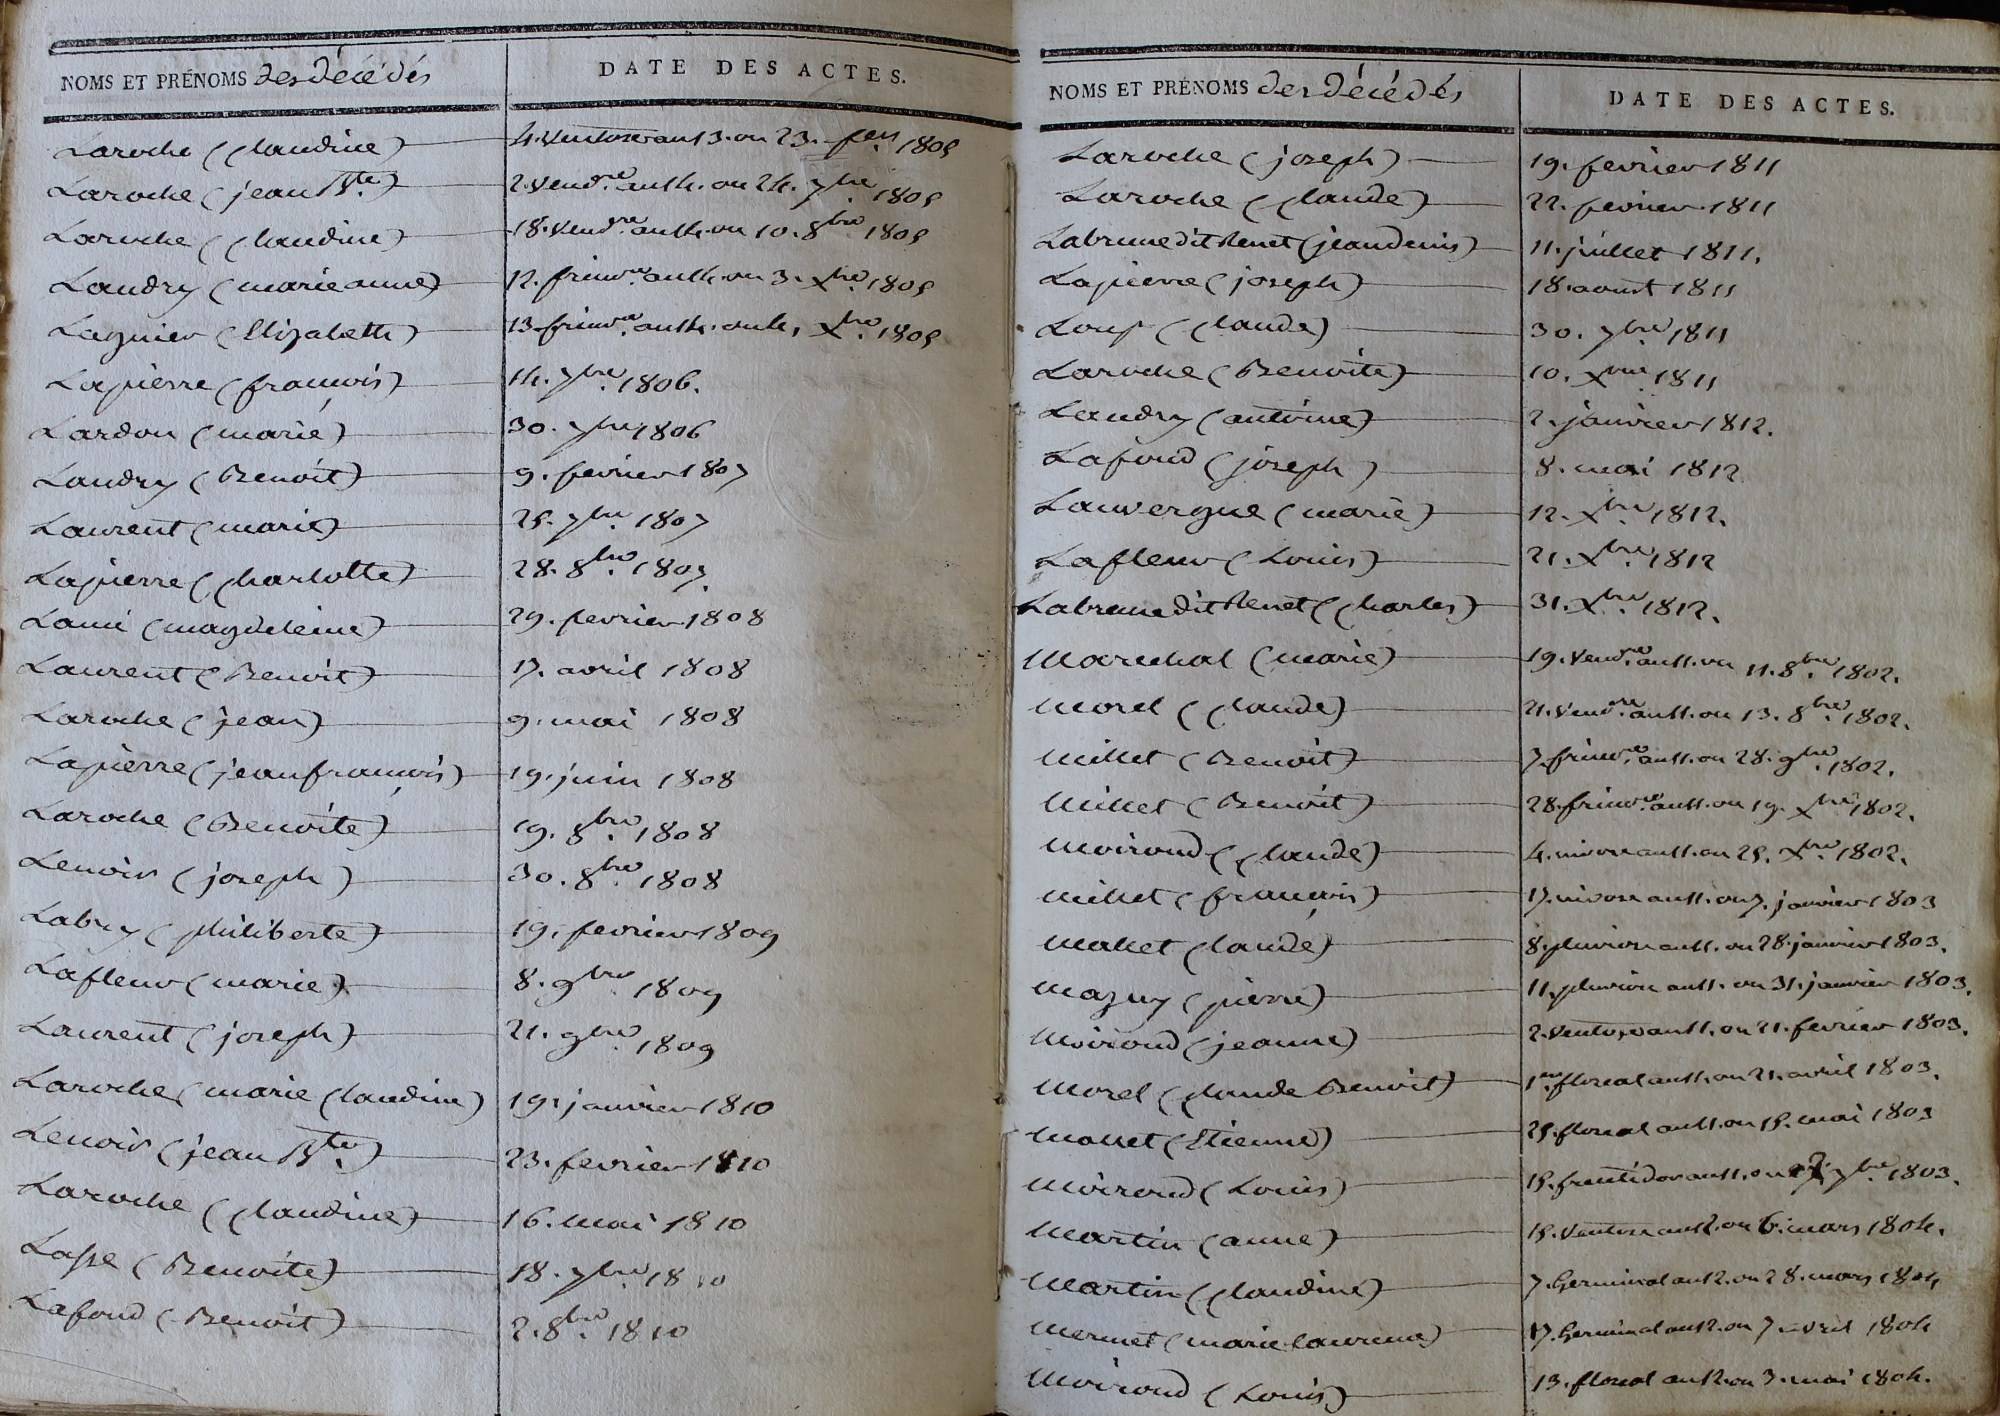 NOMS ET PRÉNOMS des décédés DATE DES ACTES.
Laroche (Claudine) 4. Ventose an 13. ou 23. fer 1805
Laroche (jean Bte) 2. Vendre an 14. ou 24. 7bre 1805
Laroche (Claudine) 18. Vendre an 14. ou 10. 8bre 1805
Landry (marie anne) 12. frimre an 14. ou 3. Xbre 1805
Lagnier (Elizabeth) 13. frimre an 14. ou 4. Xbre 1805
Lapierre (francois) 14. 7bre 1806.
Lardon (marie) 30. 7bre 1806
Landry (Benoit) 9. fevrier 1807
Laurent (marie) 25. 7bre 1807
Lapierre (Charlotte) 28. 8bre 1807.
Lami (magdeleine) 29. fevrier 1808
Laurent (Benoit) 17. avril 1808
Laroche (jean) 9. mai 1808
Lapierre (jean françois) 19. juin 1808
Laroche (Benoite) 19. 8bre 1808
Lenoir (joseph) 30. 8bre 1808
Labry (philiberte) 19. fevrier 1809
Lafleur (marie) 8. 9bre 1809
Laurent (joseph) 21. 9bre 1809
Laroche (marie Claudine) 19. janvier 1810
Lenoir (jean Bte) 23. fevrier 1810
Laroche (Claudine) 16. mai 1810
Lasse (Benoite) 18. 7bre 1810
Lafond (Benoit) 2. 8bre 1810
NOMS ET PRÉNOMS des décédés DATE DES ACTES.
Laroche (joseph) 19. fevrier 1811
Laroche (Claude) 22. fevrier 1811
Labrune dit Renet (jean denis) 11. juillet 1811.
Lapierre (joseph) 18. aoust 1811
Loup (Claude) 30. 7bre 1811
Laroche (Benoite) 10. Xbre 1811
Landry (antoine) 2. janvier 1812.
Lafond (joseph) 8. mai 1812
Lauvergne (marie) 12. Xbre 1812.
Lafleur (Louis) 21. Xbre 1812
Labrune dit Renet (Charles) 31. Xbre 1812.
Marechal (marie) 19. Vendre an 11. ou 11. 8bre 1802.
Morel (Claude) 21. Vendre an 11. ou 13. 8bre 1802.
Millet (Benoit) 7. frimre an 11. ou 28. 9bre 1802.
Millet (Benoit) 28. frimre an 11. ou 19. Xbre 1802.
Moiroud (Claude) 4. nivose an 11. ou 25. Xbre 1802.
Millet (francois) 17. nivose an 11. ou 7. janvier 1803
Mallet (Claude) 8. pluviose an 11. ou 28. janvier 1803.
Mazuy (pierre) 11. pluviose an 11. ou 31. janvier 1803.
Moiroud (jeanne) 2. Ventose an 11. ou 21. fevrier 1803.
Morel (Claude Benoit) 1er. floreal an 11. ou 21. avril 1803.
Mallet (Etienne) 25. floreal an 11. ou 15. mai 1803
Moiroud (Louis) 15. fructidor an 11. ou 7bre 1803.
Martin (anne) 15. Ventose an 12. ou 6. mars 1804.
Martin (Claudine) 7. Germinal an 12. ou 28. mars 1804
Mermet (marie laurence) 17. Germinal an 12. ou 7 avril 1804
Moiroud (Louis) 13. floreal an 12. ou 3. mai 1804.